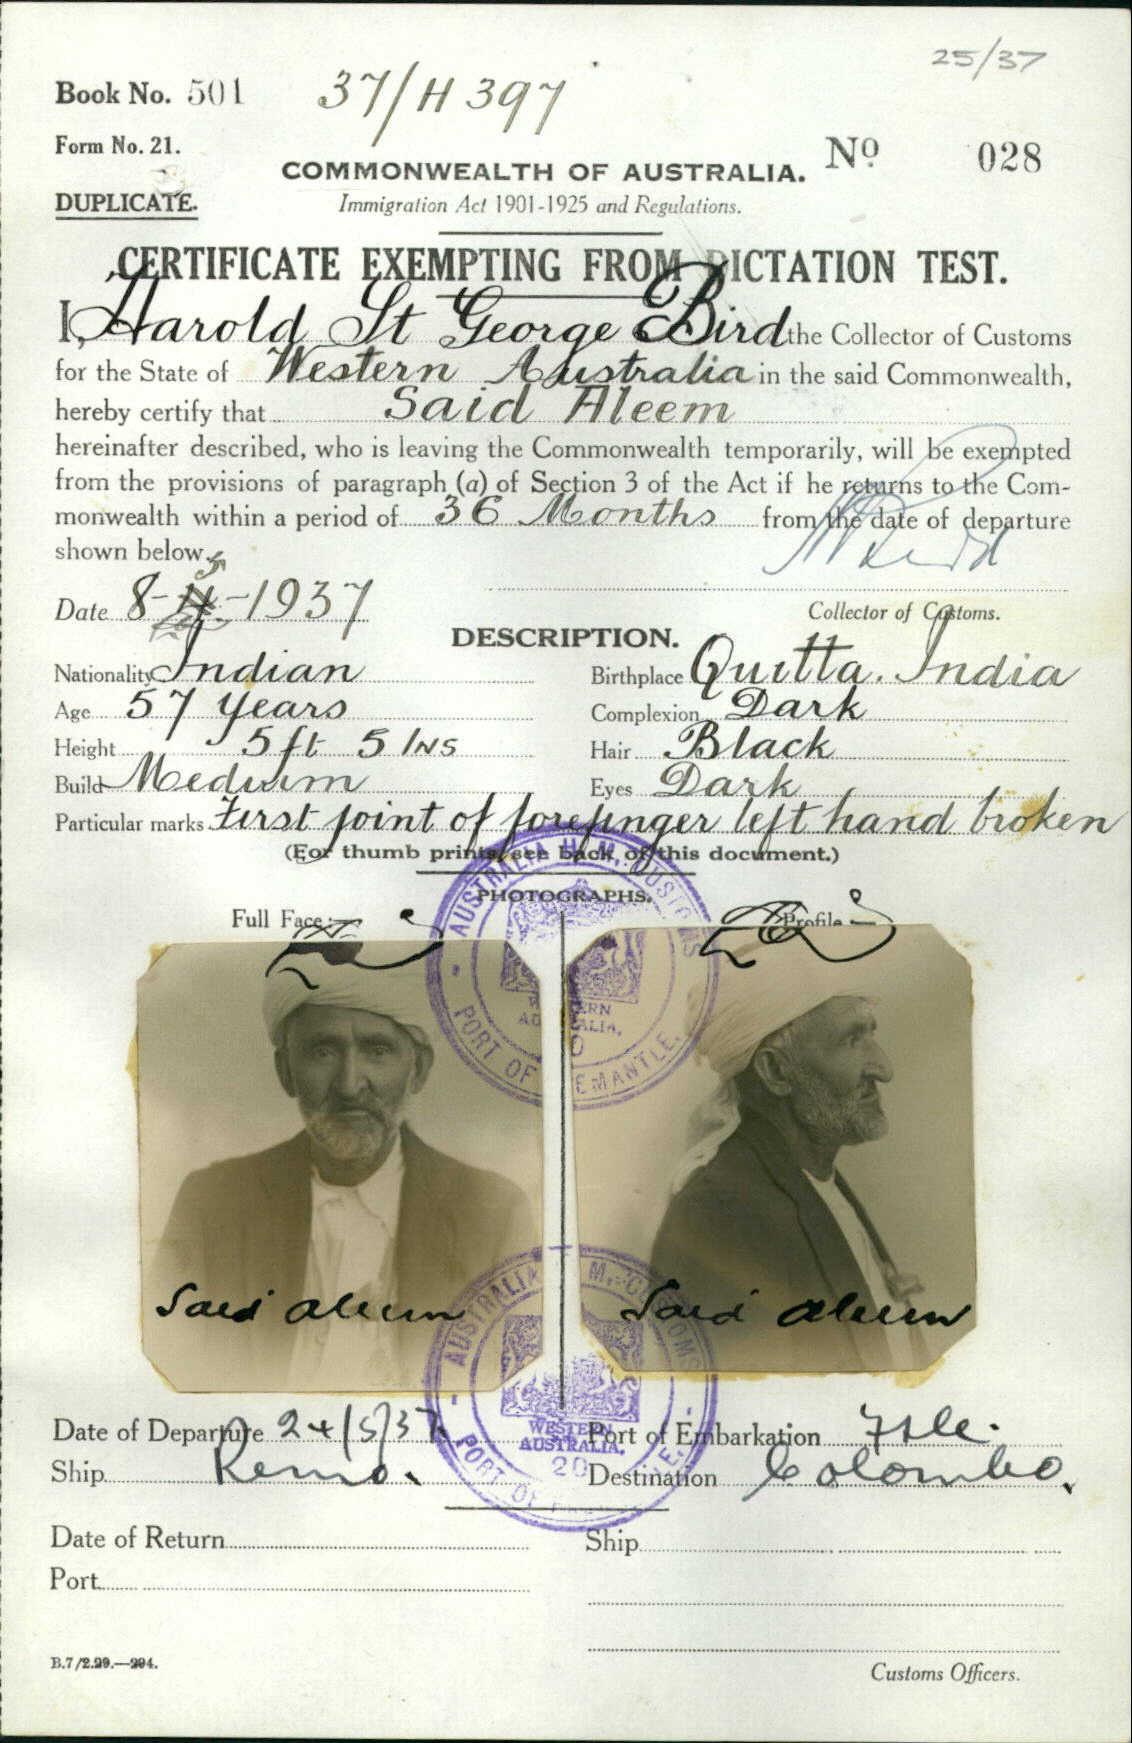 25/37
Book No. 501 37/H 397
Form No. 21.
COMMONWEALTH OF AUSTRALIA. No 028
DUPLICATE. Immigration Act 1901-1925 and Regulations.
CERTIFICATE EXEMPTING FROM DICTATION TEST.
I, Harold St George Bird the Collector of Customs
for the State of Western Australia in the said Commonwealth,
hereby certify that Said Aleem
hereinafter described, who is leaving the Commonwealth temporarily, will be exempted
from the provisions of paragraph (a) of Section 3 of the Act if he returns to the Com-
monwealth within a period of 36 Months from the date of departure
shown below.
Date 8-5-1937 Collector of Customs.
DESCRIPTION.
Nationality Indian Birthplace Quitta. India
Age 57 years Complexion Dark
Height 5 ft 5 INS Hair Black
Build Medium Eyes Dark
Particular marks First joint of forefinger left hand broken
(For thumb prints, see back of this document.)
PHOTOGRAPHS.
Full Face:— Profile:—
AUSTRALIA H.M. CUSTOMS
WESTERN
AUSTRALIA,
PORT OF FREMANTLE.
Said Aleem Said Aleem
AUSTRALIA H.M. CUSTOMS
WESTERN
AUSTRALIA,
20
PORT OF
Date of Departure 24/5/37. Port of Embarkation Ftle.
Ship Remo. Destination Colombo.
Date of Return Ship
Port
B.7/2.29.—294. Customs Officers.